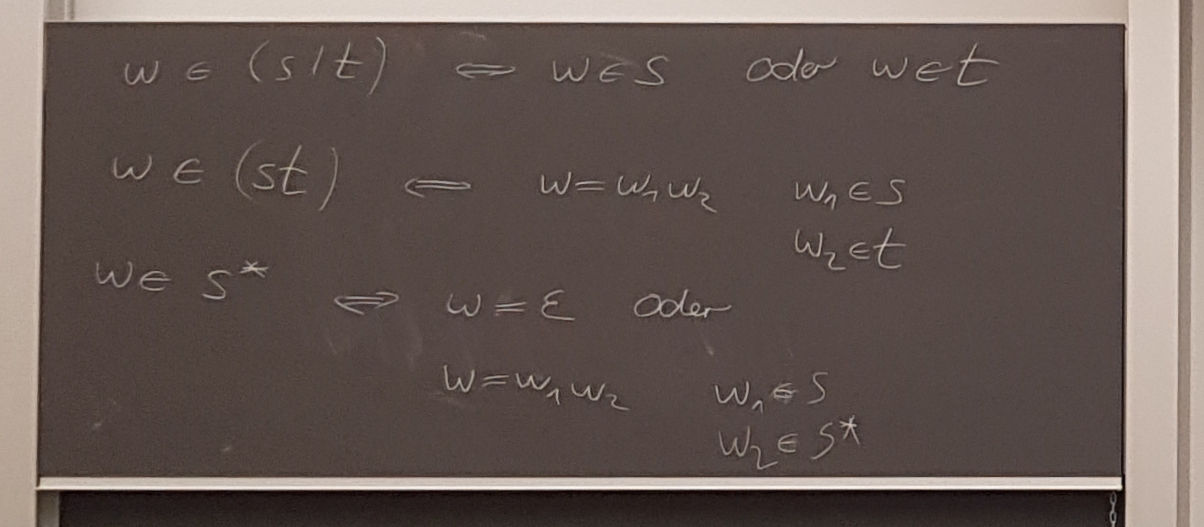 w ∈ (s|t) ⇔ w ∈ s oder w ∈ t
w ∈ (st) ⇔ w = w₁w₂ w₁ ∈ s
w₂ ∈ t
w ∈ s*
⇔ w = ε oder
w = w₁w₂ w₁ ∈ s
w₂ ∈ s*